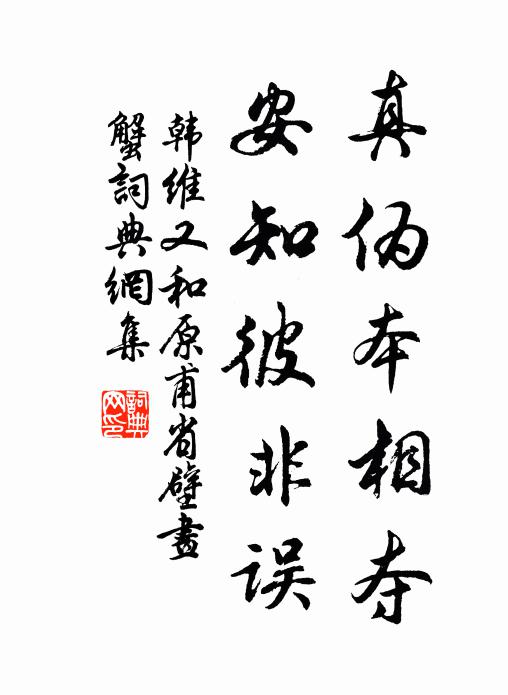 真伪本相夺
安知彼非误
韩维又和原甫省壁畫
蟹詞典網集
詞典网印